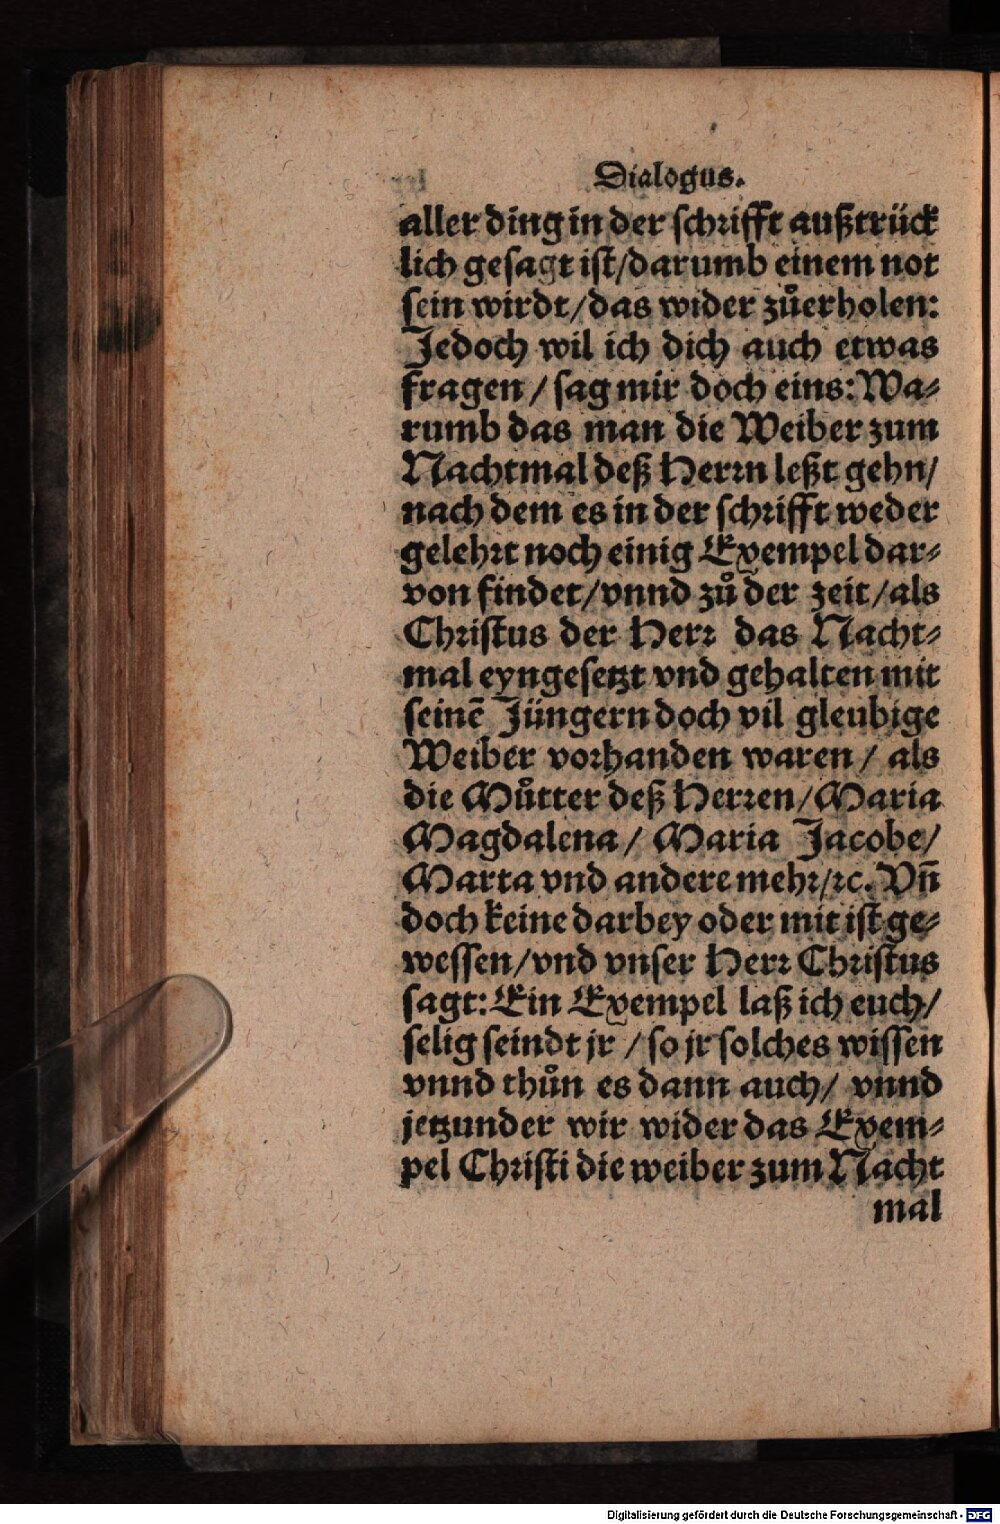 Dialogus.
aller ding in der schrifft außtrück
lich gesagt ist/darumb einem not
sein wirdt/das wider zůerholen:
Jedoch wil ich dich auch etwas
fragen/sag mir doch eins:Wa⸗
rumb das man die Weiber zum
Nachtmal deß Herrn leßt gehn/
nach dem es in der schrifft weder
gelehrt noch einig Exempel dar⸗
von findet/vnnd zů der zeit/als
Christus der Herr das Nacht⸗
mal eyngesetzt vnd gehalten mit
seinē Jüngern doch vil gleubige
Weiber vorhanden waren/ als
die Můtter deß Herren/Maria
Magdalena/ Maria Jacobe/
Marta vnd andere mehr/ꝛc. Vn̄
doch keine darbey oder mit ist ge⸗
wessen/vnd vnser Herr Christus
sagt:Ein Exempel laß ich euch/
selig seindt jr/so jr solches wissen
vnnd thůn es dann auch/ vnnd
jetzunder wir wider das Exem⸗
pel Christi die weiber zum Nacht
mal
Digitalisierung gefördert durch die Deutsche Forschungsgemeinschaft - DFG